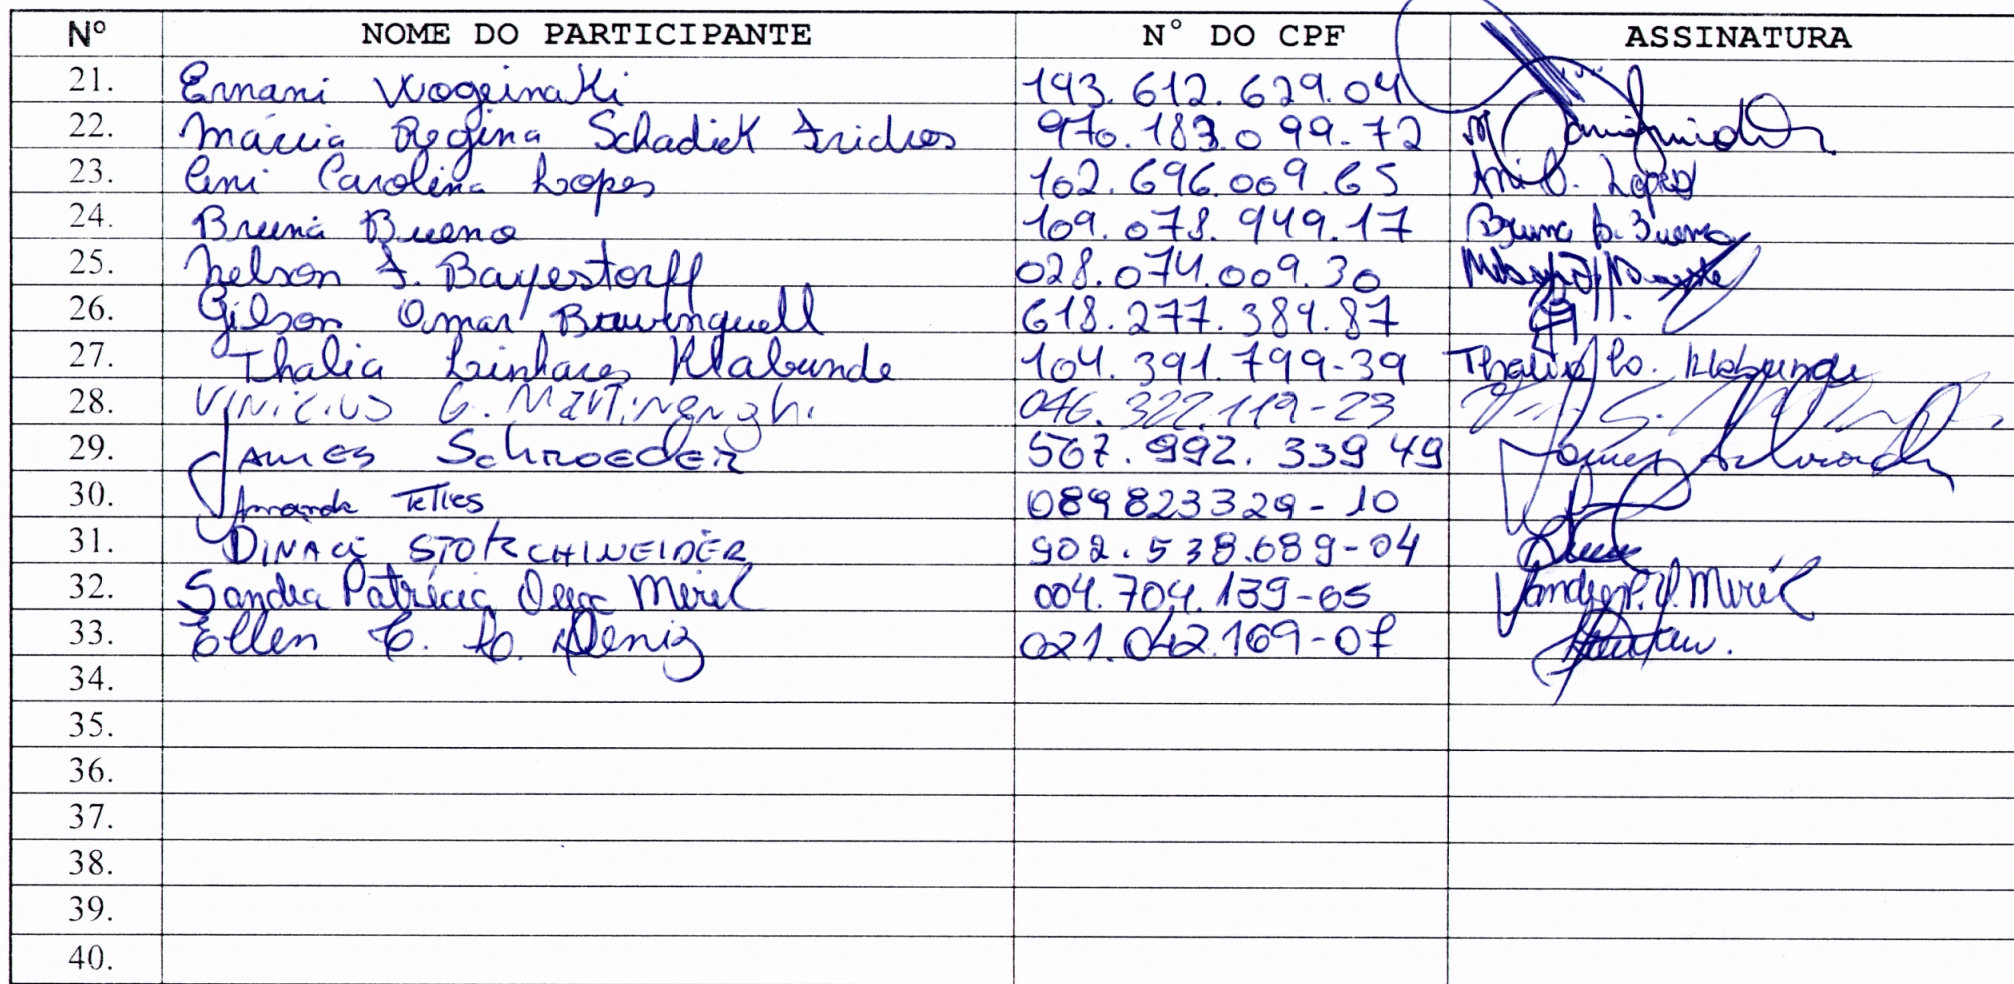 Nº NOME DO PARTICIPANTE N° DO CPF ASSINATURA
21. Ernani 193.612.629.04
22. Márcia Regina Schadick Fridres 970.183.099.72
23. Ani Carolina Lopes 102.696.009.65 Ani C. Lopes
24. Bruna Bueno 109.078.949.17 Bruna B. Bueno
25. Nelson F. Bayestorff 028.074.009.30
26. Gilson Omar 618.277.389.87
27. Thalia Linhares Klabunde 104.391.799-39 Thalia L. Klabunde
28. Vinicius G. Martinenghi 046.322.119-23
29. James Schroeder 567.992.339 49 James Schroeder
30. Amanda Telles 089823329-10
31. 902.538.689-04
32. Sandra Patrícia 004.704.139-65 Sandra P. V. Meriz
33. Ellen C. L. Deniz 021.042.169-07
34.
35.
36.
37.
38.
39.
40.